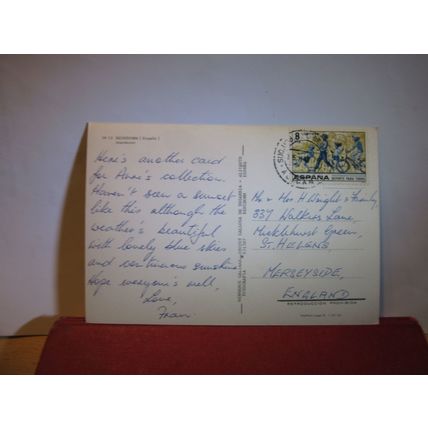 BENIDORM (España)
Here's another card
for Anne's collection.
Haven't seen a sunset
like this although the
weather's beautiful
with lovely blue skies
and continuous sunshine
Hope everyone's well,
Love,
Fran.
8
ESPAÑA
Mr & Mrs H Wright & Family,
337 Walkers Lane,
Micklehurst Green,
ST. HELENS,
MERSEYSIDE,
ENGLAND
REPRODUCCION PROHIBIDA